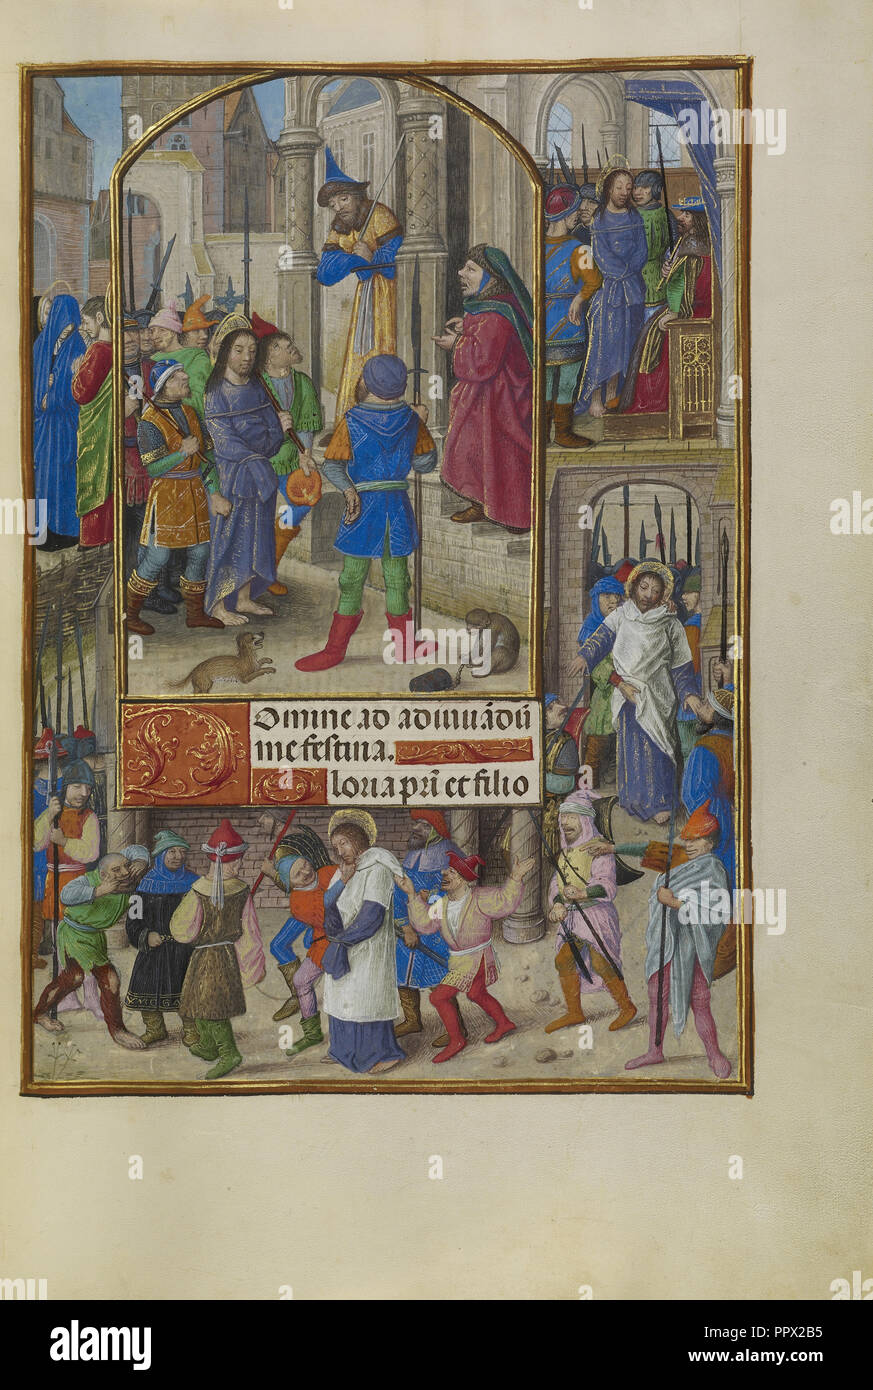 Domine ad adiuuādū
me festina.
Gloria pr̄i et filio
alamy
Image ID: PPX2B5
www.alamy.com